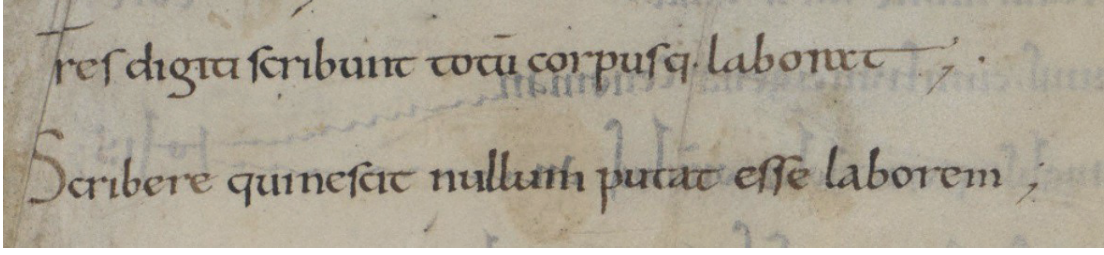 Tres digiti scribunt totū corpusq· laborat ,·
Scribere qui nescit nullum putat esse laborem ;